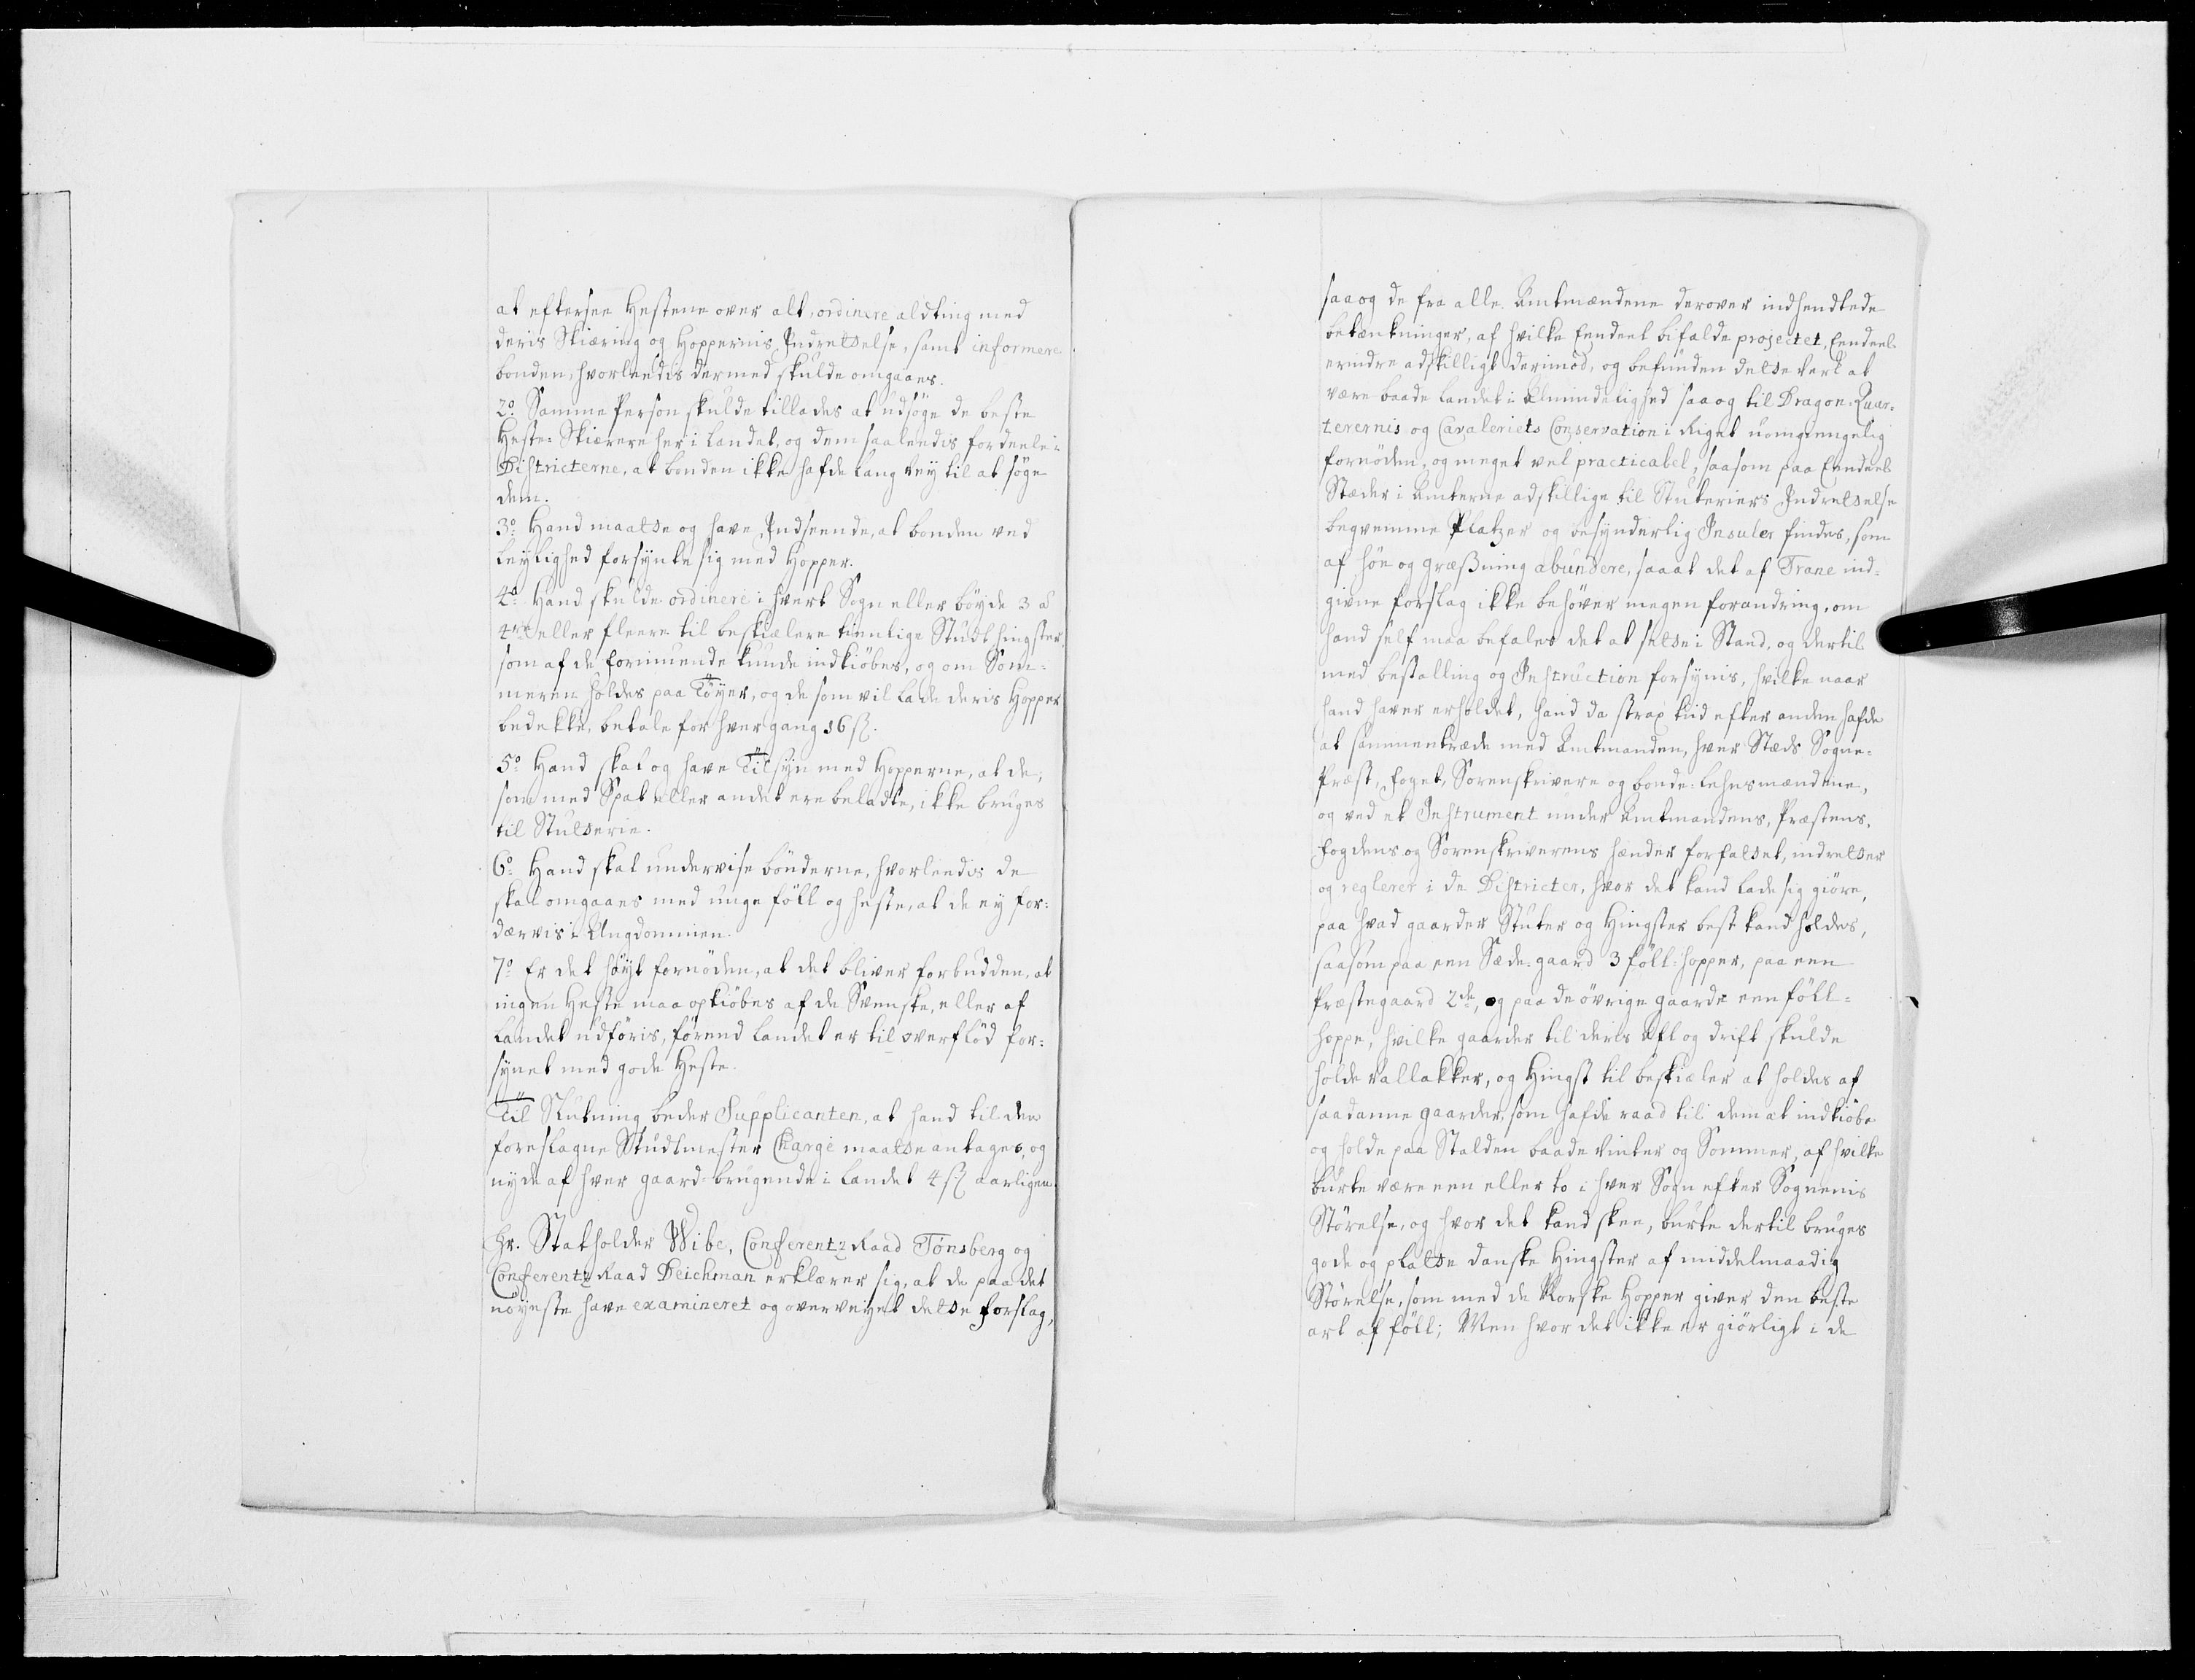 at eftersee Hestene over alt, ordinere aldting med
deris Skiæring og Hoppernis Indretdelse, samt informere
bonden, hvorleedis dermed skulde omgaaes.
2o. Samme Person skulde tillades at udsöge de beste
Heste-Skiærere her i Landet, og dem saaleedis fordeele i
Districterne, at bonden ikke hafde lang Vey til at söge
dem.
3o. Hand maatte og have Indseende, at bonden ved
leylighed forsynte sig med Hopper.
4o. Hand skulde ordinere i hvert Sogn ellerböyde 3 a
4re eller fleere til beskiælere tienlige Studt hingster
som af de formuende kunde indkiöbes, og om Som¬
meren holdes paa Töyer, og de som vil lade deris Hopper
bedekke, betale for hver gang 16 ß.
5o. Hand skal og have Tilsyn med Hopperne, at de,
som med Spat eller andet ere beladte, ikke bruges
til Stutterie.
6o. Hand skal undervise bönderne, hvorleedis de
skal omgaaes med unge föll og heste, at de ey for¬
dærvis i Ungdommen.
7o. Er det höyt fornöden, at det bliver forbudden, at
ingen Heste maa opkiöbes af de Svenske, eller af
Landet udföris, förend Landet er til overflöd for¬
synet med gode Heste.
Til Slutning beder Supplicanten, at hand til den
foreslagne Studtmester Charge maatte antages, og
nyde af hver gaard-brugende i Landet 4 ß aarligen.
Hr. Statholder Wibe, Conferentz Raad Tonsberg og
Conferentz Raad Deichman erklærer sig, at de paa det
nöyeste have examineret og overveyet dette forslag,
saa og de fra alle Amtmændene derover indhendtede
betænkninger, af hvilke Eendeel bifalde projectet, Eendeel
erindre adskilligt derimod, og befunden dette Verk at
være baade Landet i Almindelighed saa og til Dragon-Quar¬
terernis og Cavaleriets Conservation i Riget uomgiengelig
fornöden, og meget vel practicabel, saasom paa Eendeel
Stæder i Amterne adskillige til Stuteriers Indrettelse
beqvemme Platzer og besynderlig Insuler findes, som
af höe og græsning abundere, saa at det af Trane ind¬
givne forslag ikke behöver megen forandring, om
hand self maa befales det at sette i Stand, og dertil
med bestalling og Instruction forsynis, hvilke naar
hand haver erholdet, hand da strax tid efter anden hafde
at sammentræde med Amtmanden, hver Stæds Sogne¬
Præst, foget, Sorenskrivere og bonde-lehnsmændene,
og ved et Instrument under Amtmandens, Præstens,
fogdens og Sorenskriverens hænder forfattet, indretter
og reglerer i de Districter, hvor det kand lade sig giöre,
paa hvad gaarder Stuter og Hingster best kand holdes,
saasom paa een Sæde-gaard 3 föll-hopper, paa een
Præstegaard 2de, og paa de övrige gaarde een föll¬
hoppe, hvilke gaarder til deris Afl og drift skulde
holde Vallakker, og Hingst til beskiæler at holdes af
saadanne gaarder, som hafde raad til dem at indkiöbe
og holde paa Stalden baade Vinter og Sommer, af hvilke
burte være een eller to i hver Sogn efter Sognenis
Störelse, og hvor det kand skee, burte dertil bruges
gode og platte danske Hingster af middelmaadig
Störelse, som med de Norske Hopper giver den beste
art af föll; Men hvor det ikke er giörligt i de